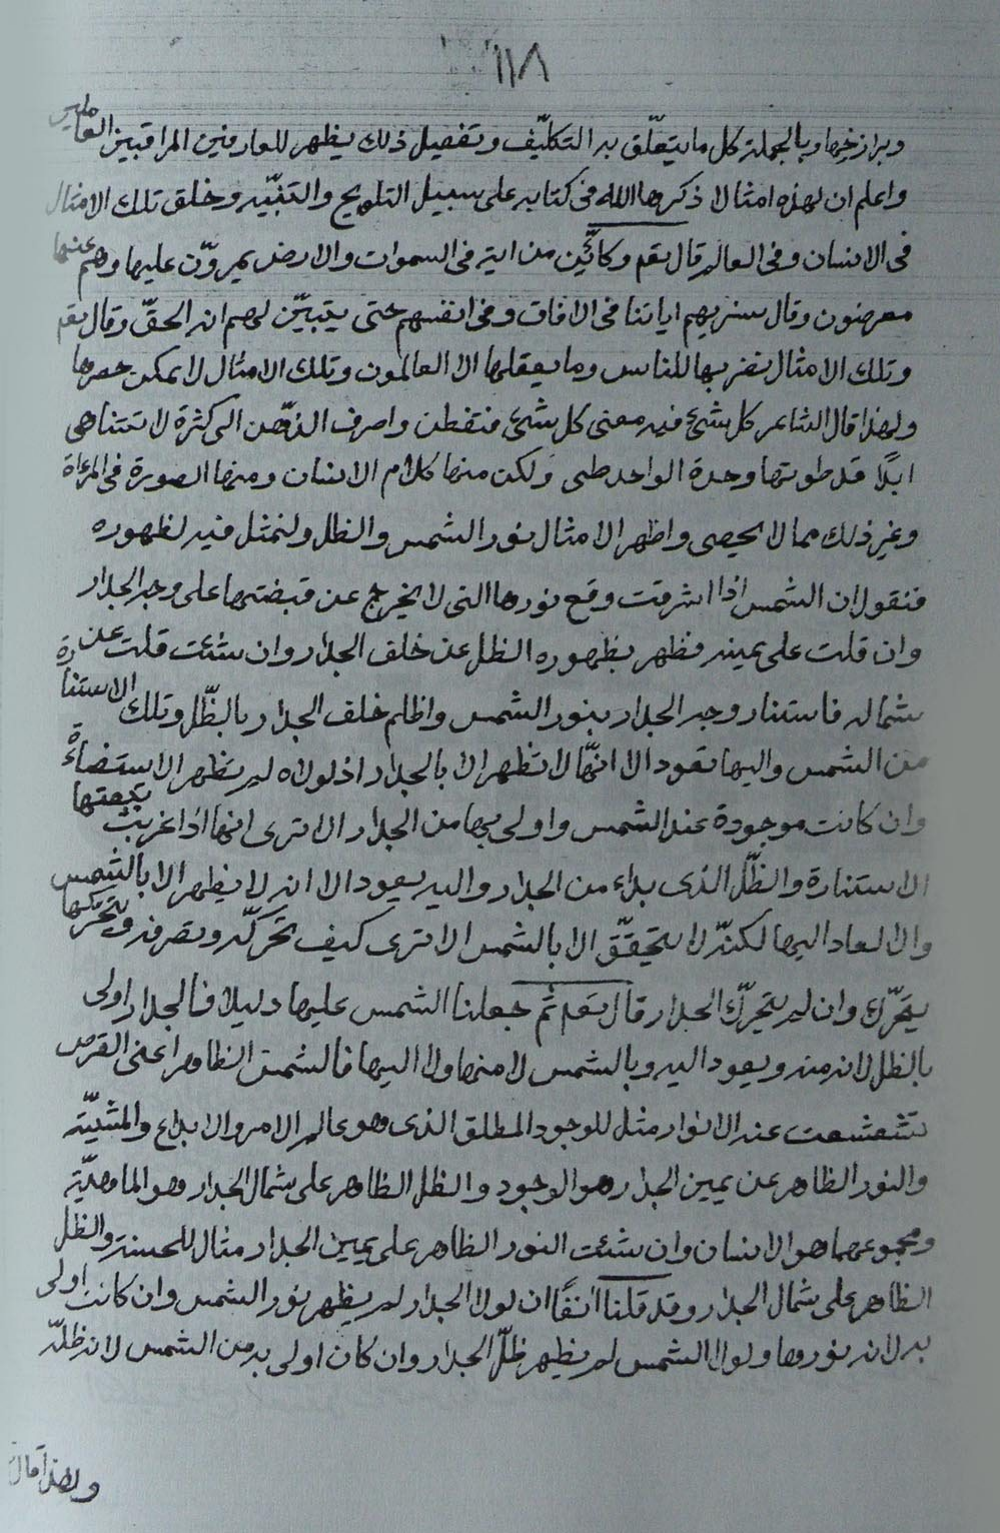 ١١٨
وبرازخها وبالجملة كل ما يتعلّق به التكليف وتفصيل ذلك يظهر للعارفين المراقبين العاملين
واعلم ان لهذه امثالا ذكرها الله فى كتابه على سبيل التلويح والتنبيه وخلق تلك الامثال
فى الانسان وفى العالم قال تعم وكايّن من اية فى السموات والارض يمرّون عليها وهم عنها
معرضون وقال سنريهم اياتنا فى الافاق وفى انفسهم حتى يتبيّن لهم انه الحقّ وقال تعم
وتلك الامثال نضربها للناس وما يعقلها الا العالمون وتلك الامثال لا يمكن حصرها
ولهذا قال الشاعر كل شئ فيه معنى كل شئ فتفطن واصرف الذهن الى كثرة لا تتناهى
ابدًا قد طوتها وحدة الواحد طى ولكن منها كلام الانسان ومنها الصورة فى المرءاة
وغير ذلك مما لا يحصى واظهر الامثال نور الشمس والظل ولنمثل فيه لظهوره
فنقول ان الشمس اذا اشرقت وقع نورها التى لا يخرج عن قبضتها على وجه الجدار
وان قلت على يمينه فظهر بظهوره الظل عن خلف الجدار وان شئت قلت عن
شماله فاستنار وجه الجدار بنور الشمس واظلم خلف الجدار بالظّل وتلك الاستنارة
من الشمس واليها تعود الا انّها لا تظهر الا بالجدار اذ لولاه لم تظهر الاستضاءة
وان كانت موجودة عند الشمس واولى بها من الجدار الا ترى انها اذا غربت تبعتها
الاستنارة والظّل الذى بداء من الجدار واليه يعود الا انه لا يظهر الا بالشمس
والا لعاد اليها لكنّه لا يتحقّق الا بالشمس الا ترى كيف تحركّه وتصرفه وبتحركها
يتحرّك وان لم يتحرّك الجدار قال تعم ثمّ جعلنا الشمس عليها دليلا فالجدار اولى
بالظل لانه منه ويعود اليه وبالشمس لا منها ولا اليها فالشمس الظاهر اعنى القرص
تشعشعت عنه الانوار مثل للوجود المطلق الذى هو عالم الامر والابداع والمشيّة
والنور الظاهر عن يمين الجدار هو الوجود والظل الظاهر على شمال الجدار وهو الماهيّة
ومجموعهما هو الانسان وان شئت النور الظاهر على يمين الجدار مثال للحسنة والظل
الظاهر على شمال الجدار وقد قلنا انفًا ان لولا الجدار لم يظهر نور الشمس وان كانت اولى
به لانه نورها ولولا الشمس لم يظهر ظلّ الجدار وان كان اولى به من الشمس لانه ظلّه
ولهذا قال